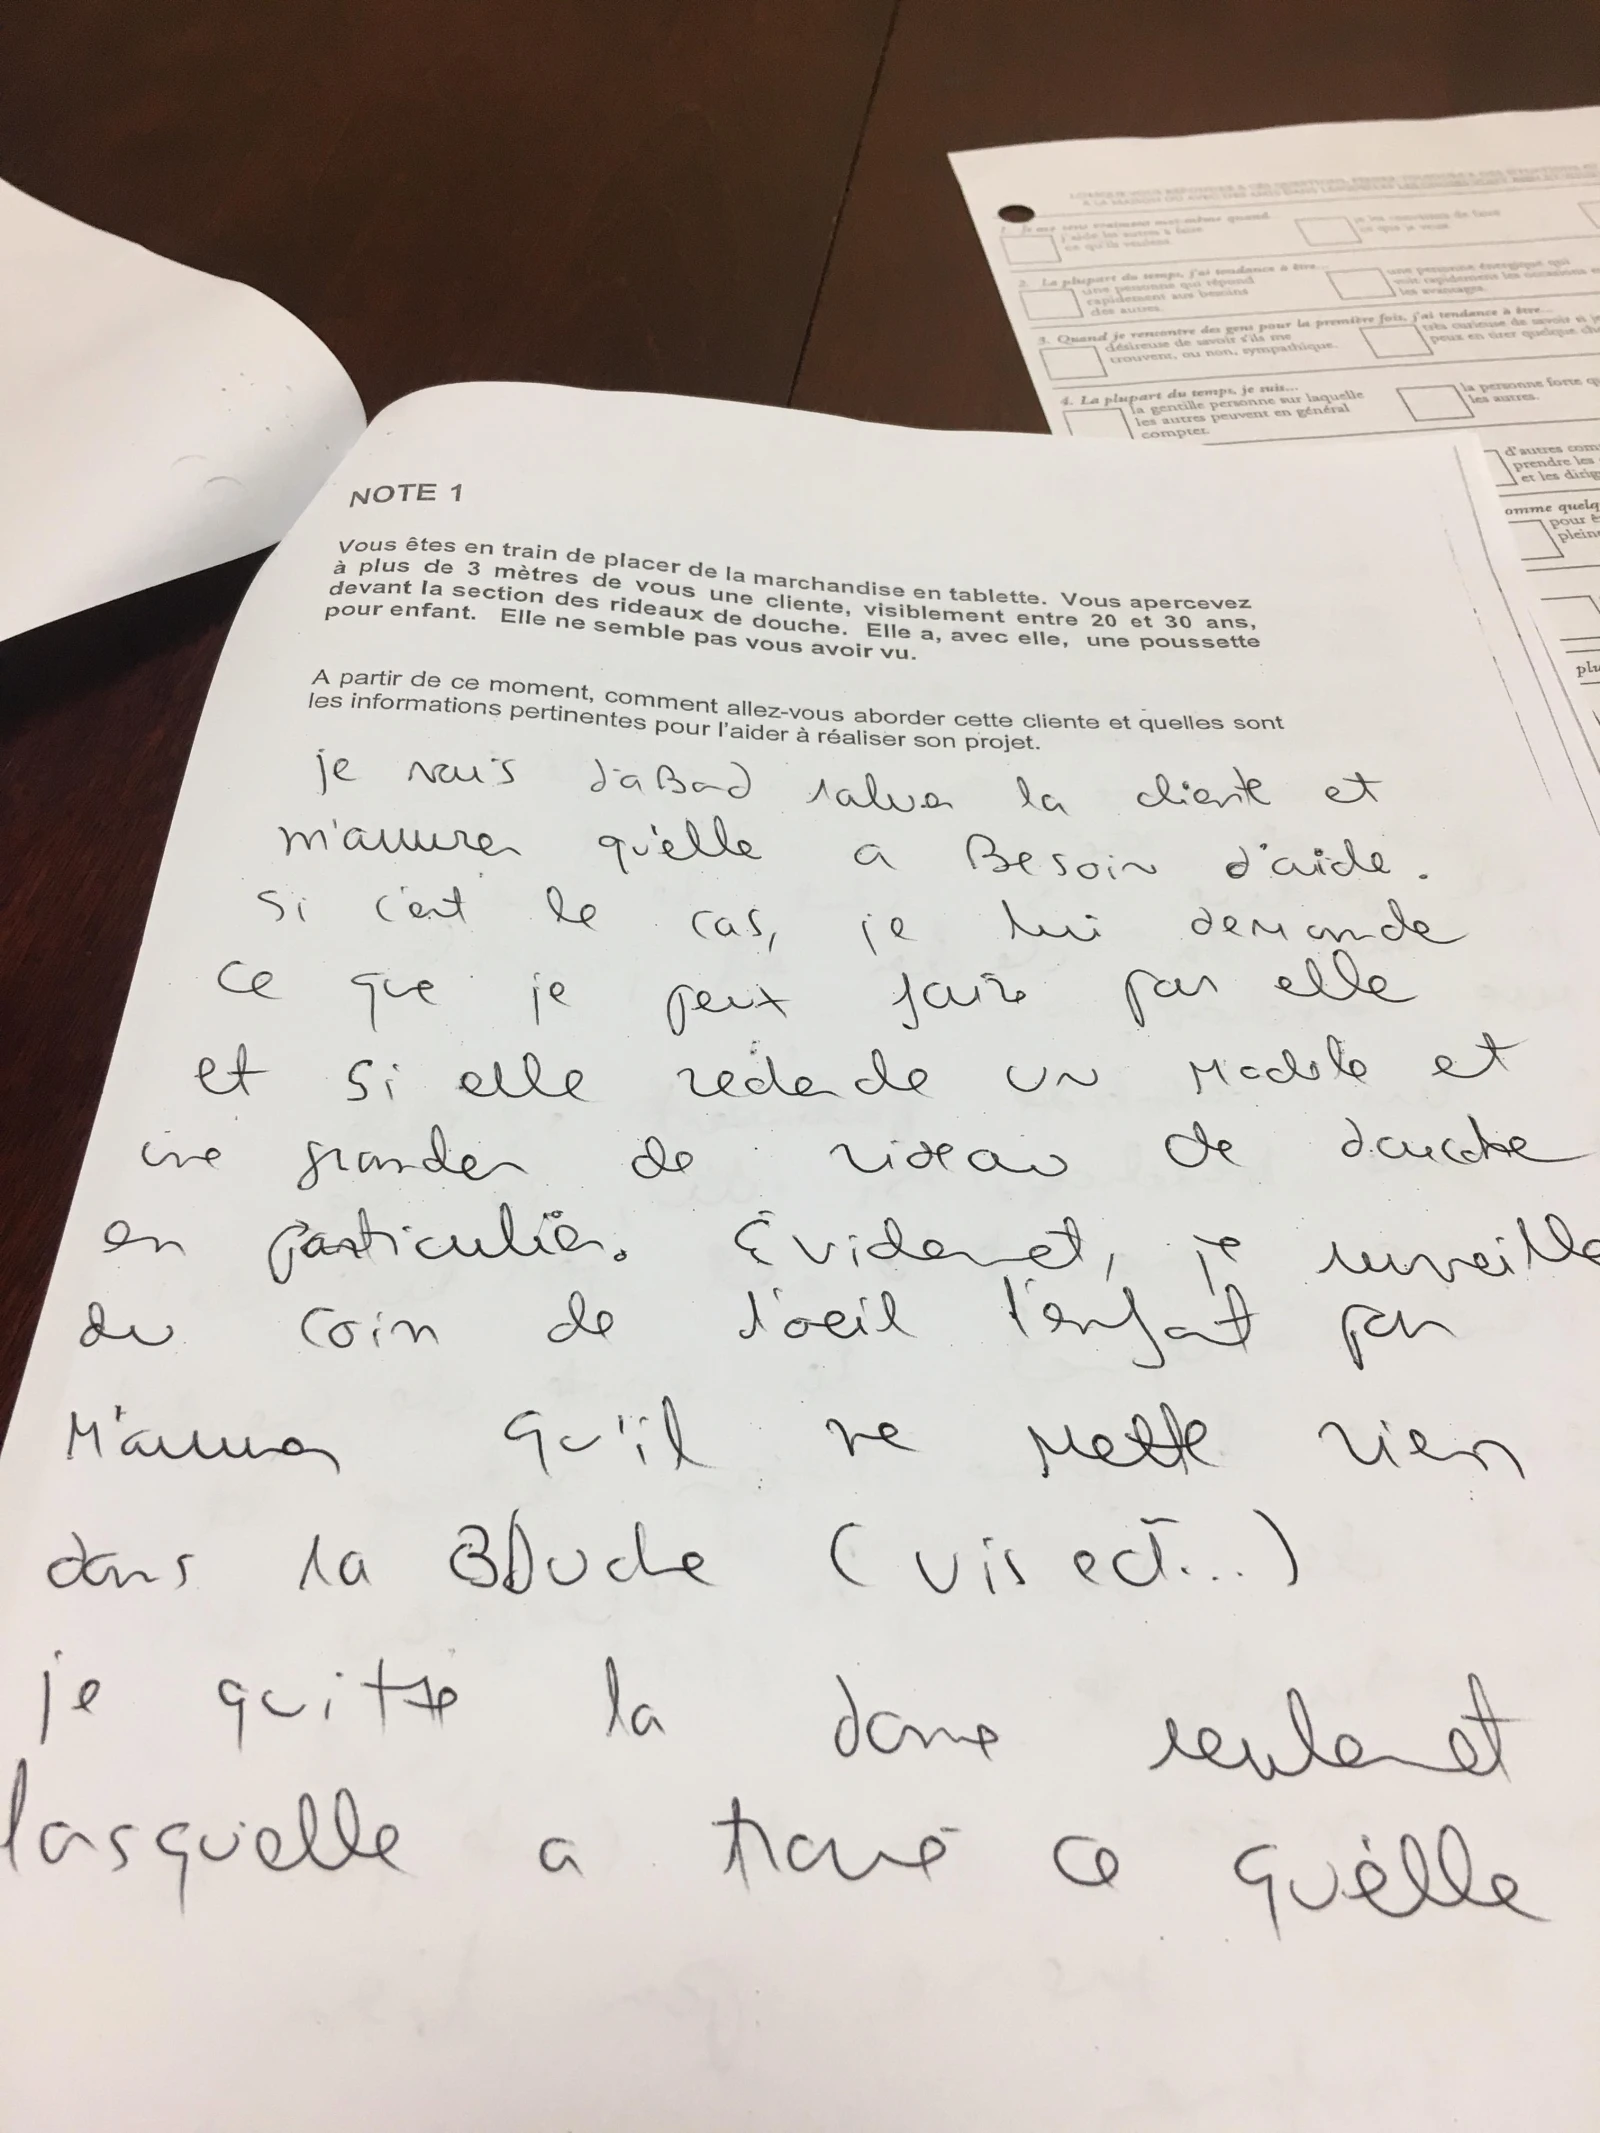 1. Je me sens vraiment moi-même quand...
j'aide les autres à faire
ce qu'ils veulent.
je les convaincs de faire
ce que je veux.
2. La plupart du temps, j'ai tendance à être...
une personne qui répond
rapidement aux besoins
des autres.
une personne énergique qui
voit rapidement les occasions et
les avantages.
3. Quand je rencontre des gens pour la première fois, j'ai tendance à être...
désireuse de savoir s'ils me
trouvent, ou non, sympathique.
très curieuse de savoir si je
peux en tirer quelque
4. La plupart du temps, je suis...
la gentille personne sur laquelle
les autres peuvent en général
compter.
la personne forte
les autres.
d'autres
prendre les
et les
omme
pour
NOTE 1
Vous êtes en train de placer de la marchandise en tablette. Vous apercevez
à plus de 3 mètres de vous une cliente, visiblement entre 20 et 30 ans,
devant la section des rideaux de douche. Elle a, avec elle, une poussette
pour enfant. Elle ne semble pas vous avoir vu.
A partir de ce moment, comment allez-vous aborder cette cliente et quelles sont
les informations pertinentes pour l'aider à réaliser son projet.
je vais d'aBord saluer la cliente et
m'assurer qu'elle a Besoin d'aide.
Si c'est le cas, je lui demande
ce que je peux faire pour elle
et si elle un Modèle et
une grandeur de rideau de douche
en particulier. Évidement, je surveille
du coin de l'oeil l'enfant pour
M'assurer qu'il ne Mette rien
dans la Bouche (vis ect...)
je quitte la dame seulement
lasquelle a trouvé ce qu'elle